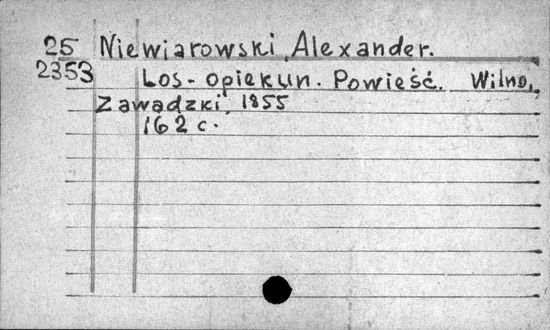 25 Niewiarowski, Alexander.
2353 Los - opiekun. Powieść. Wilno,
Zawadzki, 1855
162 c.